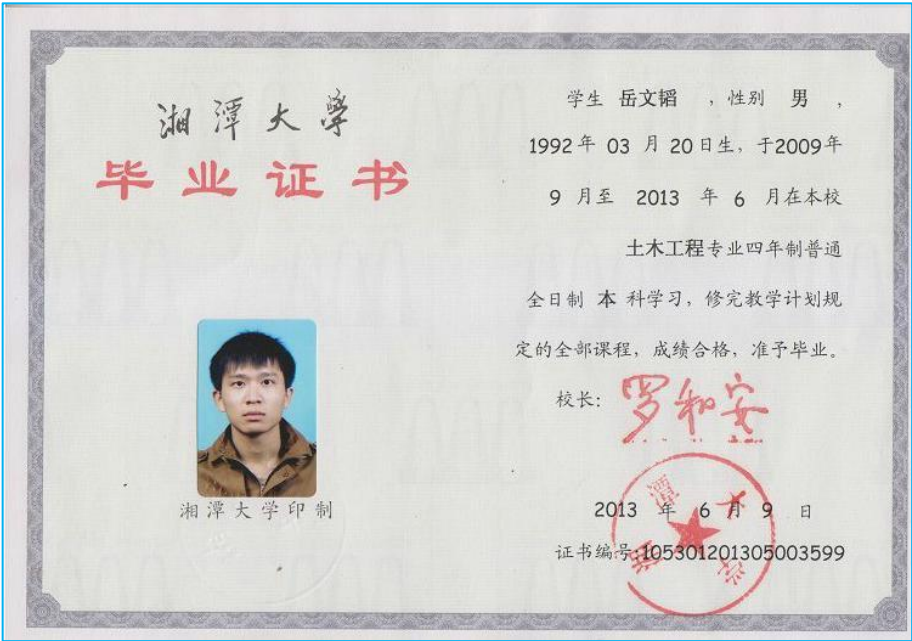 湘潭大学
毕业证书
湘潭大学印制
学生 岳文韬 ，性别 男 ，
1992年 03 月 20日生，于2009年
9 月至 2013 年 6 月在本校
土木工程专业四年制普通
全日制 本 科学习，修完教学计划规
定的全部课程，成绩合格，准予毕业。
校长：罗和安
2013 年 6 月 9 日
证书编号:105301201305003599
湘潭大学